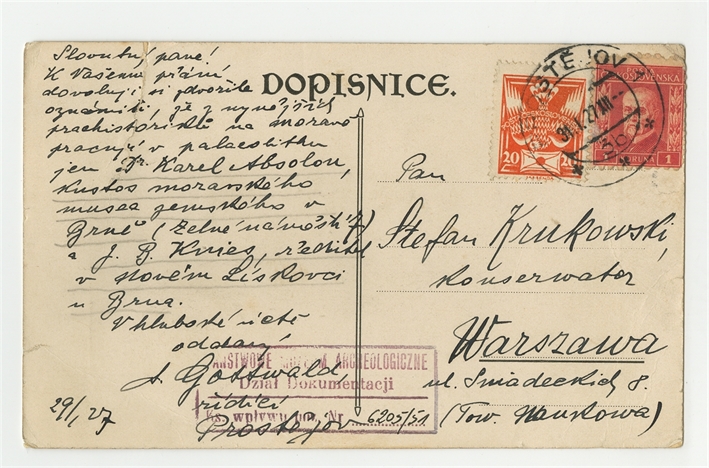 Slovutný pane!
K Vašemu přání
dovoluji si zdvořile
oznámiti, že z nynějších
praehistoriků na Moravě
pracují v palaeolitu
jen Dr. Karel Absolon,
kustos moravského
musea zemského v
Brně (Zelné náměstí 7)
a J. B. Knies, ředitel
v Novém Lískovci
u Brna.
V hluboké úctě
oddaný
A. Gottwald,
řídící
Prostějov
29/I 27
DOPISNICE.
PROSTĚJOV
20
POŠTA
ČESKOSLOVENSKA
KORUNA 1
Pan
Stefan Krukowski,
konserwator
Warszawa
ul. Śniadeckich 8.
(Tow. Naukowe)
PAŃSTWOWE MUZEUM ARCHEOLOGICZNE
Dział Dokumentacji
Ks. wpływu pow. Nr 6205/51